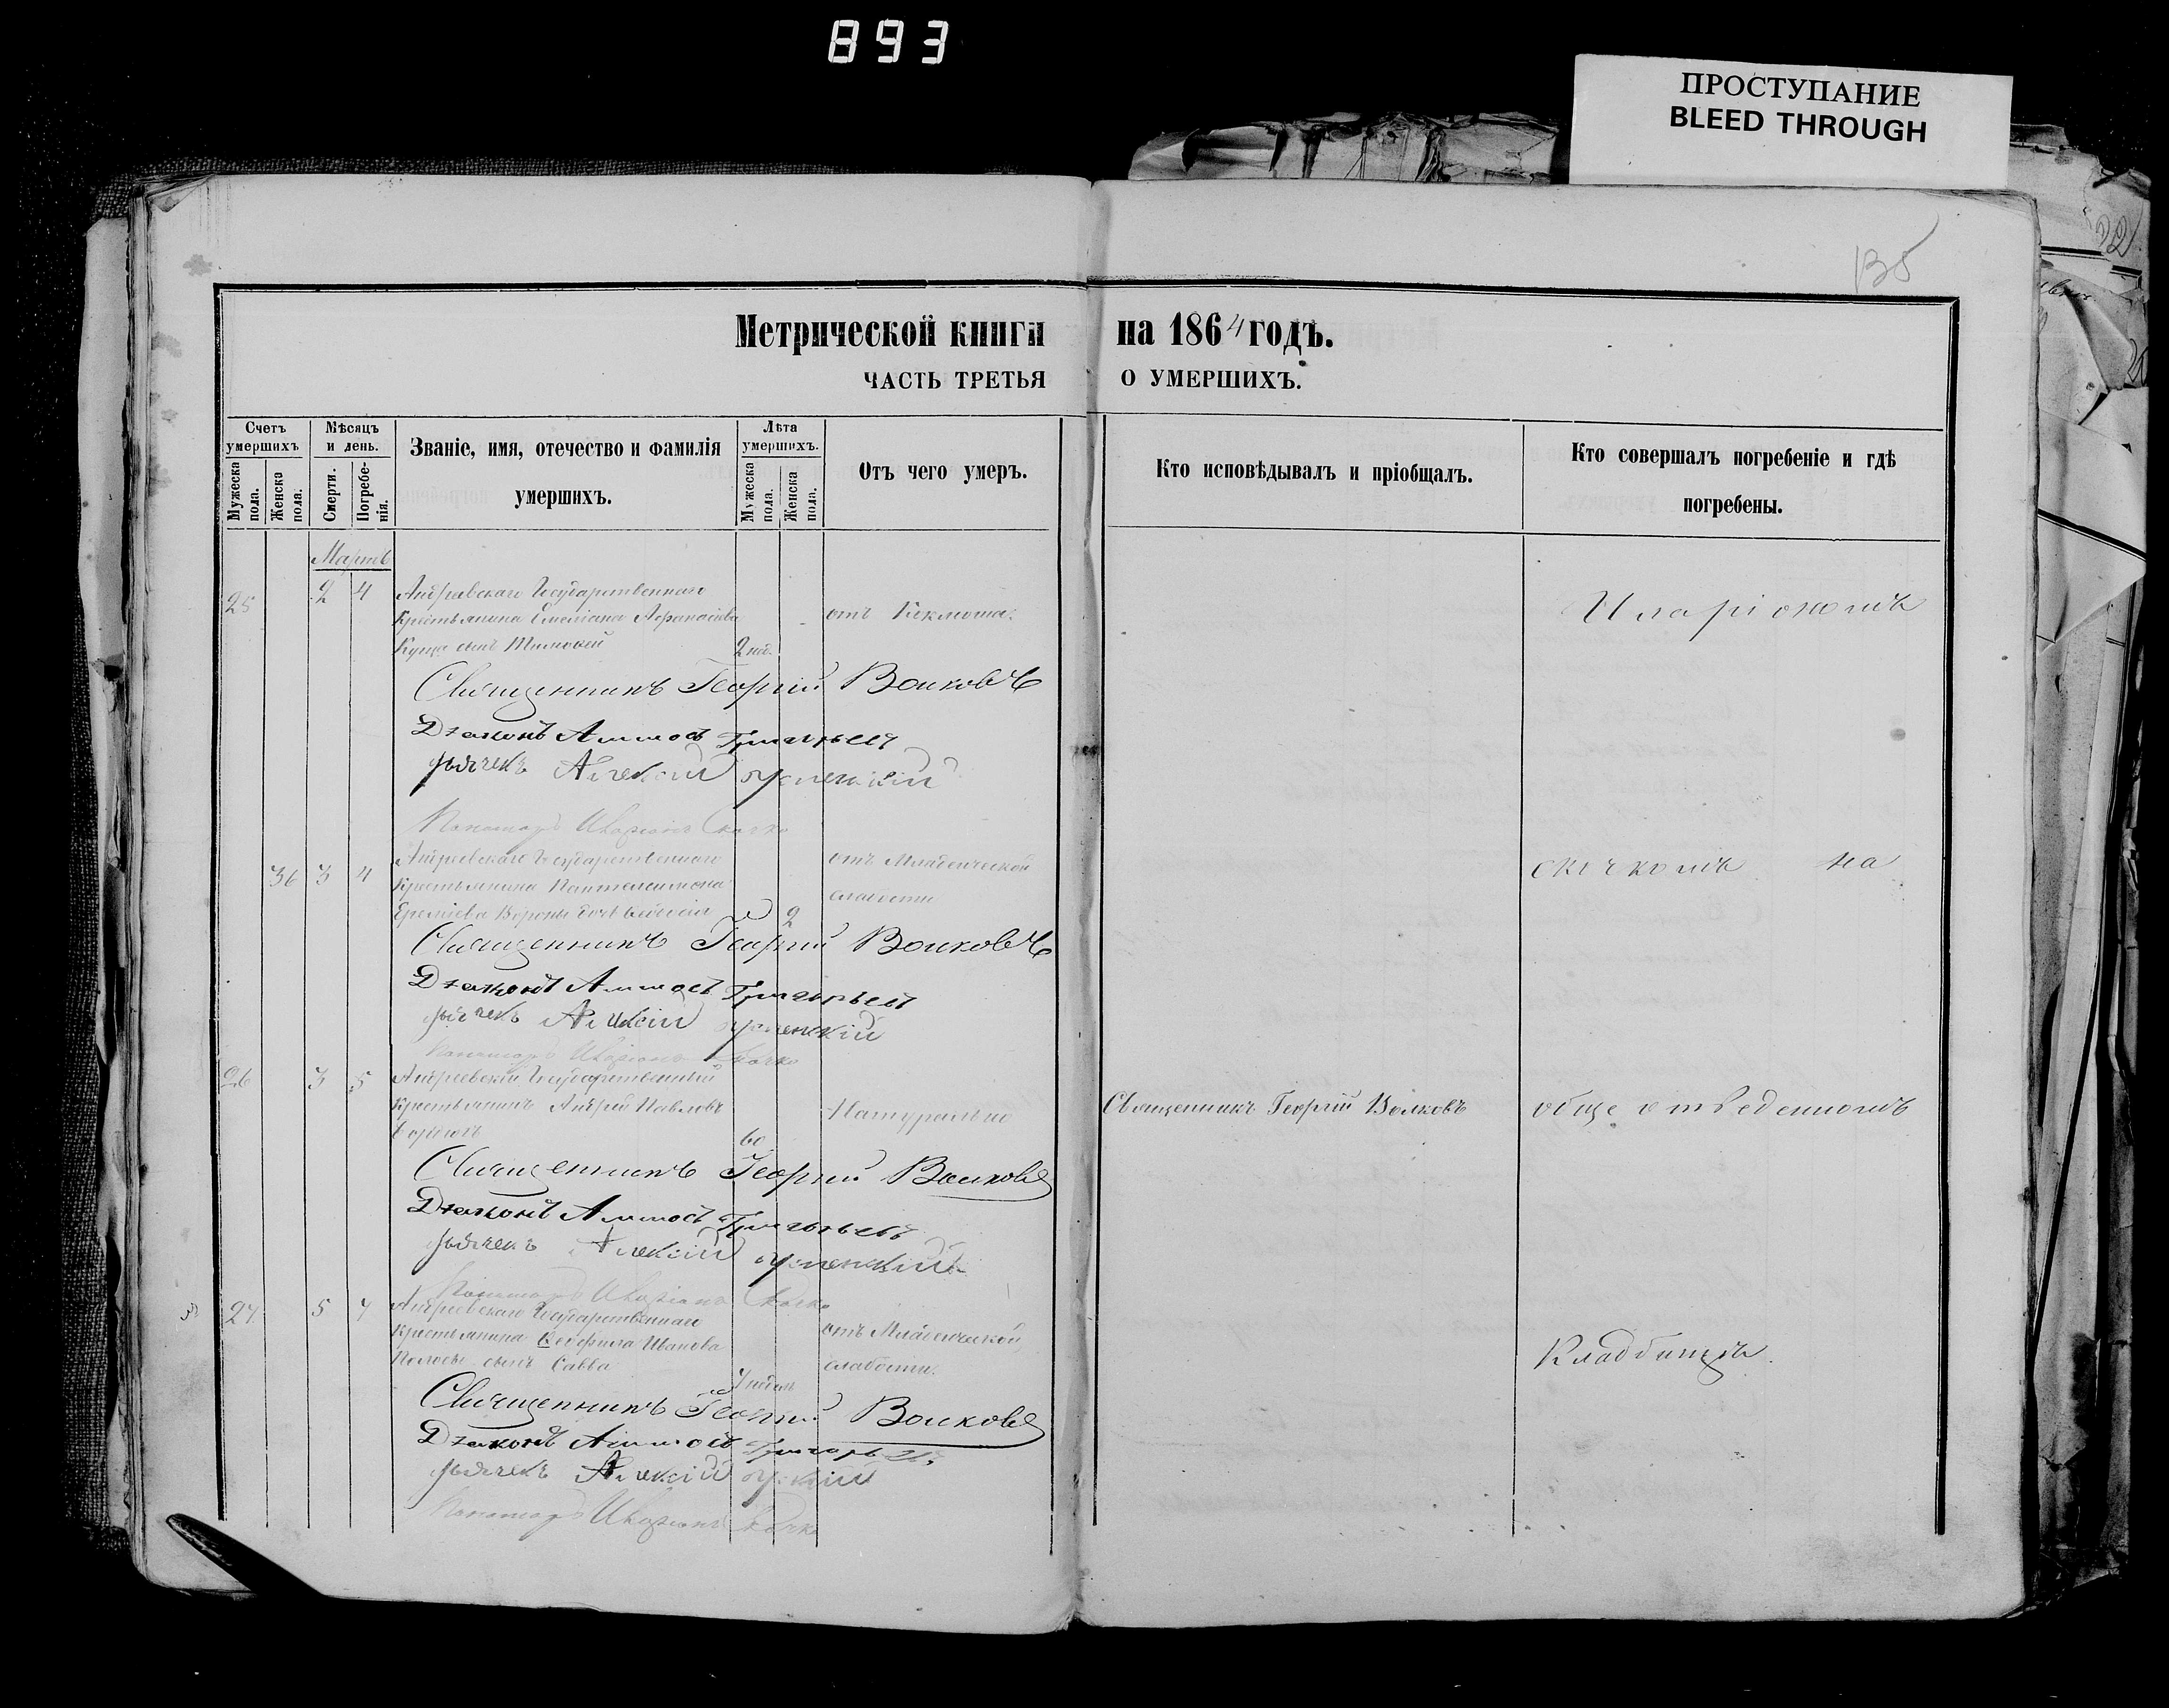 893
ПРОСТУПАНИЕ
BLEED THROUGH
22
135
Метрической книги на 1864 годъ.
ЧАСТЬ ТРЕТЬЯ О УМЕРШИХЪ.
Счетъ умершихъ
Мужеска пола.
Женска пола.
Мѣсяцъ и день.
Смерти.
Погребенія.
Званіе, имя, отечество и фамилія умершихъ.
Лѣта умершихъ.
Мужеска пола.
Женска пола.
Отъ чего умеръ.
Кто исповѣдывалъ и пріобщалъ.
Кто совершалъ погребеніе и гдѣ погребены.
Мартъ
25 2 4 Андреевскаго Государственнаго
Крестьянина Емеліана Афанасіева отъ
Куща сынъ Тимоѳей 2 нед.
Иларіономъ
Священникъ Георгій Волковъ
Діаконъ Аммосъ Григорьевъ
Дьячекъ Алексій
Пономарь Иларіонъ Скочко
36 3 4 Андреевскаго Государственнаго отъ Младенческой
Крестьянина Пантелеимона слабости
Еремѣева Вороны дочь Ѳеодосія 2
Скочкомъ на
Священникъ Георгій Волковъ
Діаконъ Аммосъ Григорьевъ
Дьячекъ Алексій
Пономарь Иларіонъ Скочко
26 3 5 Андреевскій Государственный
Крестьянинъ Андрей Павловъ Натурально
60
Священникъ Георгій Волковъ
обще отведенномъ
Священникъ Георгій Волковъ
Діаконъ Аммосъ Григорьевъ
Дьячекъ Алексій
Пономарь Иларіонъ Скочко
27 5 7 Андреевскаго Государственнаго
Крестьянина Иванова отъ Младенческой
сынъ Савва слабости.
7 недель
Кладбищѣ.
Священникъ Георгій Волковъ
Діаконъ Аммосъ Григорьевъ
Дьячекъ Алексій
Пономарь Иларіонъ Скочко